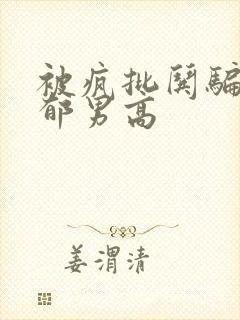 被疯批阅骗
郁男高
姜渭清